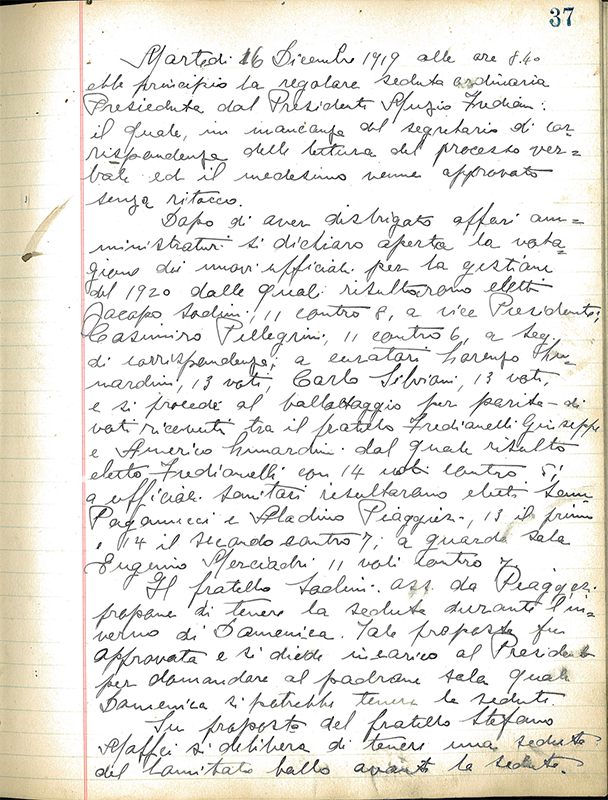 37
Martedi 16 Dicembre 1919 alle ore 8.40
ebbe principio la regolare seduta ordinaria
Presieduta dal Presidente Muzio Frediani.
il quale, in mancanza del segretario di cor=
rispondenza delle lettura del processo ver=
bale ed il medesimo venne approvato
senza ritocco.
Dopo di aver disbrigato affari am=
ministrativi si dichiaro aperta la vota=
zione dei nuovi ufficiali per la gestione
del 1920 dalle quali risultarono eletti
Jacopo Sodini, 11 contro 8, a vice Presidente;
Casimiro Pellegrini, 11 contro 6, a Seg.
di corrispondenza; a curatori Lorenzo Lu=
nardini, 13 voti, Carlo Silviani, 13 voti,
e si procede al ballottaggio per parita di
voti ricevuti tra il fratello Fredianelli Giuseppe
e Americo Lunardini dal quale risultò
eletto Fredianelli con 14 voti contro 5;
a ufficiali sanitari risultarono eletti
Paganucci e Aladino Piaggesi, 13 il primo
14 il secondo contro 7; a guarda sala
Eugenio Merciadri 11 voti contro 7
Il fratello Sodini ass. da Piaggesi
propone di tenere la seduta durante l'in=
verno di Domenica. Tale proposta fu
approvata e si diede incarico al Presidente
per domandare al padrone sala quale
Domenica si potrebbe tenere le sedute.
Su proposta del fratello Stefano
Maffei si delibera di tenere una seduta
del Comitato ballo avanti la seduta.